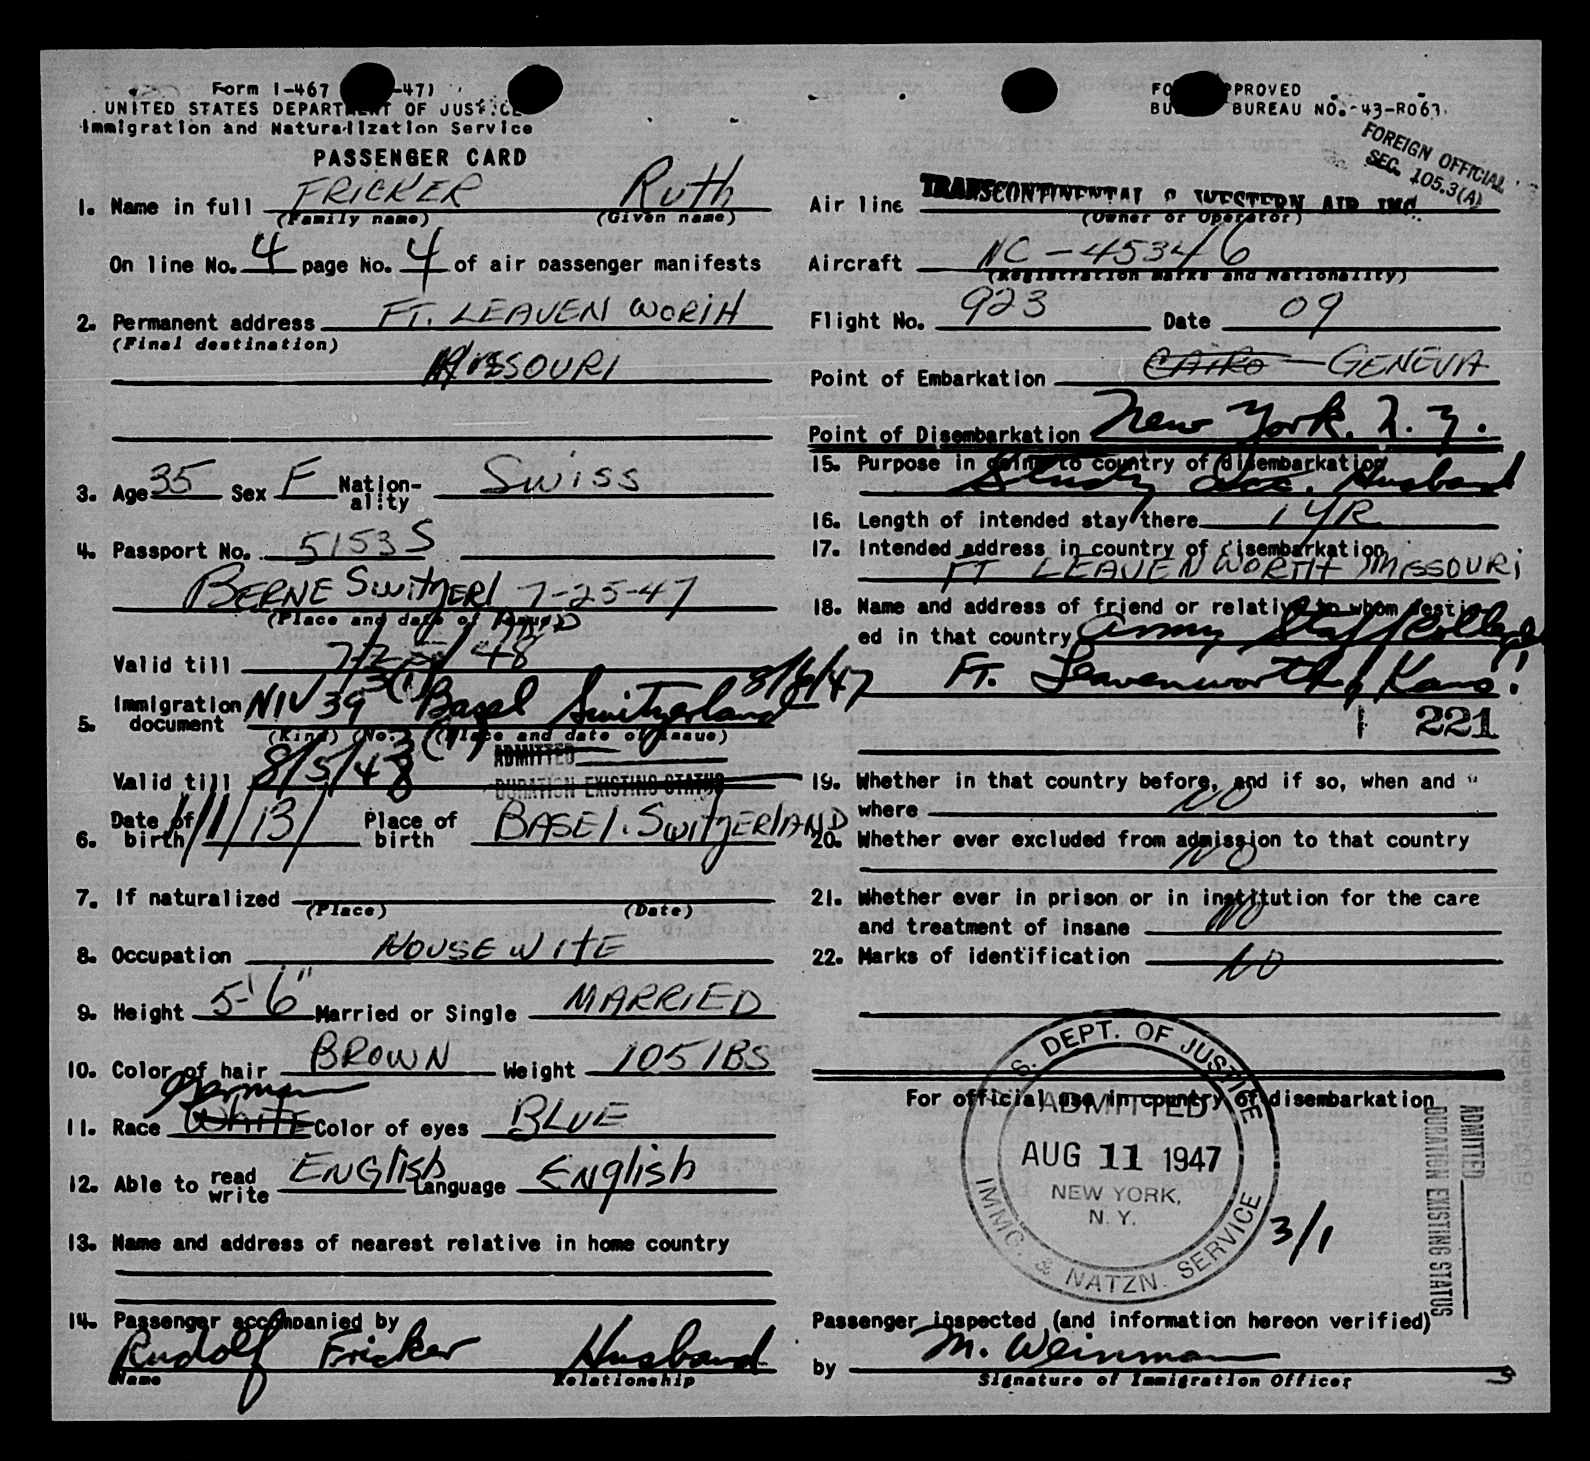 Form I-467 -47)
UNITED STATES DEPARTMENT OF JUSTICE
Immigration and Naturalization Service
PASSENGER CARD
1. Name in full FRICKER Ruth
(Family name) (Given name)
On line No. 4 page No. 4 of air passenger manifests
2. Permanent address FT. LEAVEN WORTH
(Final destination)
MISSOURI
3. Age 35 Sex F Nation-ality Swiss
4. Passport No. 5153 S
BERNE SwitzERl 7-25-47
(Place and date of issue)
Valid till 7/25/48
5. Immigration document NIV 39 3(1) Basel Switzerland 8/6/47
(Kind) (No.) (Place and date of issue)
3(1) ADMITTED
Valid till 8/5/48 DURATION EXISTING STATUS
6. Date of birth /11/13 Place of birth BASEl. SwitzERlAND
7. If naturalized
(Place) (Date)
8. Occupation HOUSEWIFE
9. Height 5-'6" Married or Single MARRIED
10. Color of hair BROWN Weight 105 lBS
German
11. Race WhitE Color of eyes BLUE
12. Able to read write ENGlish Language ENglish
13. Name and address of nearest relative in home country
14. Passenger accompanied by
Rudolf Fricker Husband
Name Relationship
FO PPROVED
BU BUREAU NO.-43-R063.
FOREIGN OFFICIAL
SEC. 105.3(A)
Air line TRANSCONTINENTAL & WESTERN AIR INC.
(Owner or Operator)
Aircraft NC-45346
(Registration marks and Nationality)
Flight No. 923 Date 09
Point of Embarkation CAIRO - GENEVA
Point of Disembarkation New York. N. Y.
15. Purpose in going to country of disembarkation
Study Acc. Husband
16. Length of intended stay there 1 YR
17. Intended address in country of disembarkation
FT LEAVENWORTH MISSOURI
18. Name and address of friend or relative to whom destin-
ed in that country Army Staff College
Ft. Leavenworth, Kans.
221
19. Whether in that country before, and if so, when and
where NO
20. Whether ever excluded from admission to that country
NO
21. Whether ever in prison or in institution for the care
and treatment of insane NO
22. Marks of identification NO
For official use in country of disembarkation
S. DEPT. OF JUSTICE
ADMITTED
AUG 11 1947
NEW YORK,
N. Y.
IMMG. & NATZN. SERVICE
3/1
ADMITTED
DURATION EXISTING STATUS
Passenger inspected (and information hereon verified)
by M. Weinman
Signature of Immigration Officer